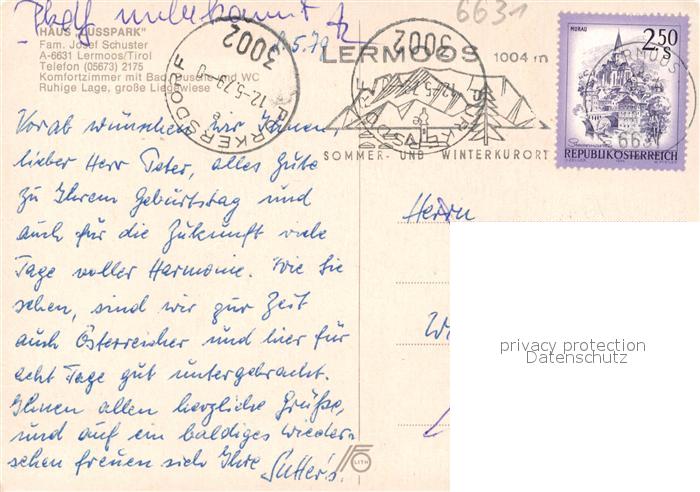 Pkdf unbekannt
6631
"HAUS LUSSPARK"
Fam. Josef Schuster
A-6631 Lermoos/Tirol
Telefon (05673) 2175
Komfortzimmer mit Bad, Dusche und WC
Ruhige Lage, große Liegewiese
.5.79
3002 PURKERSDORF
12.-5.79-9
e
LERMOOS 1004 m
SOMMER- UND WINTERKURORT
3002 PURKERSDORF
12.-5.79-9
e
MURAU
2.50
S
REPUBLIK ÖSTERREICH
LERMOOS
6631
Vorab wünschen wir Ihnen
lieber Herr Peter, alles Gute
zu Ihrem Geburtstag und
auch für die Zukunft viele
Tage voller Harmonie. Wie Sie
sehen, sind wir zur Zeit
auch Österreicher und hier für
acht Tage gut untergebracht.
Ihnen allen herzliche Grüße,
und auf ein baldiges Wieder-
sehen freuen sich Ihre Sutter's.
Herrn
Wi
LITH
privacy protection
Datenschutz